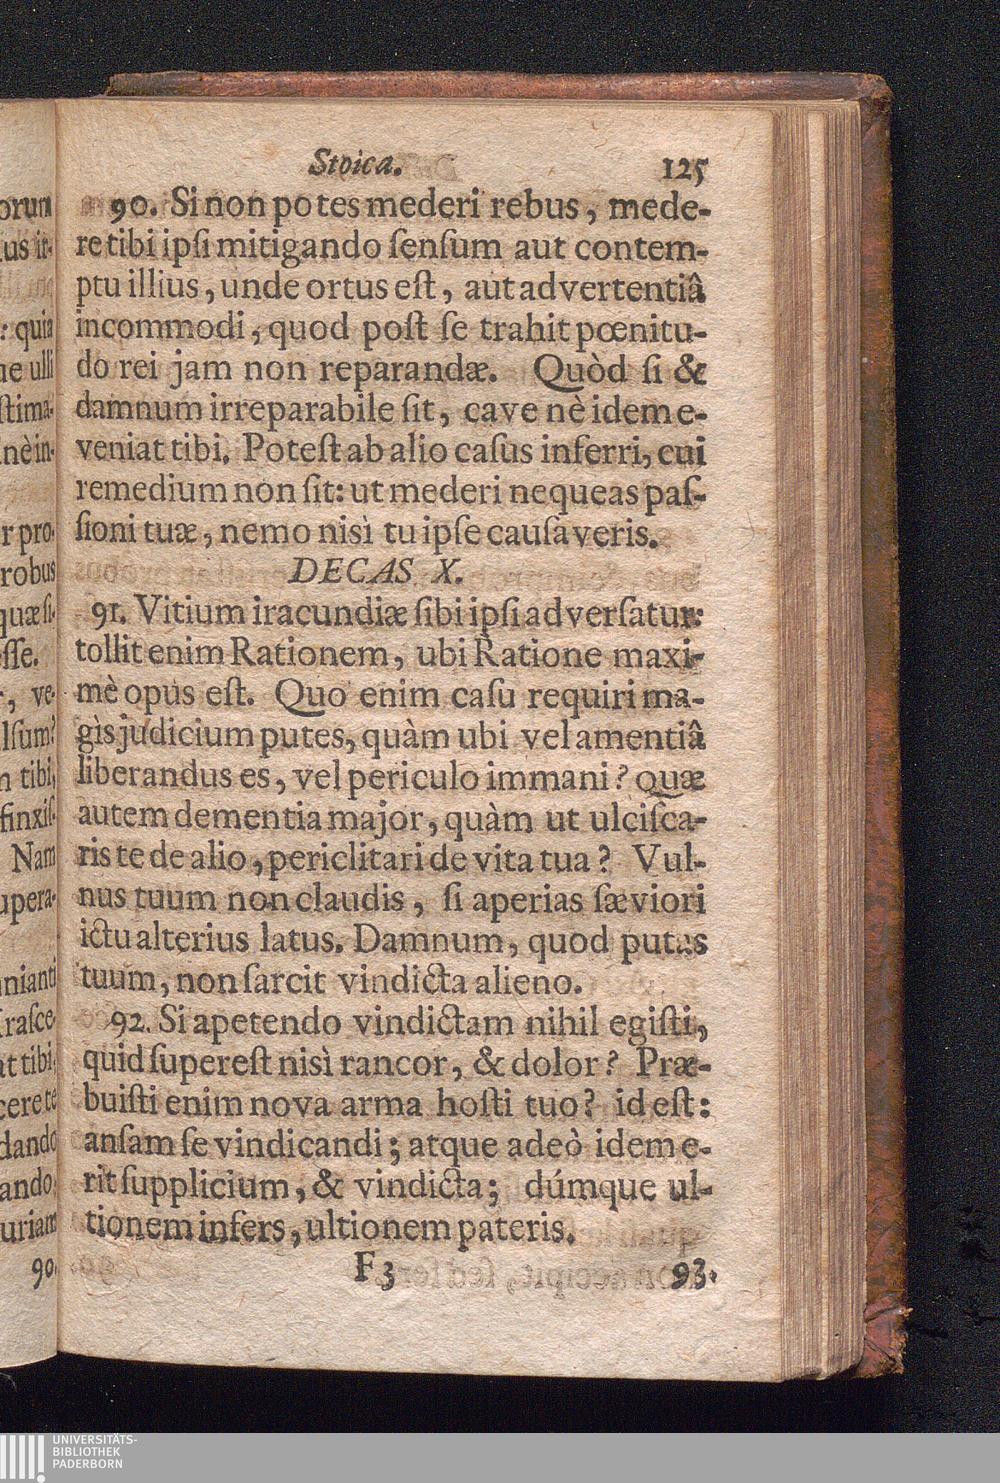 Stoica. 125
90. Si non potes mederi rebus, mede-
re tibi ipſi mitigando ſenſum aut contem-
ptu illius, unde ortus eſt, aut advertentiâ
incommodi, quod poſt ſe trahit pœnitu-
do rei jam non reparandæ. Quòd ſi &
damnum irreparabile ſit, cave nè idem e-
veniat tibi. Poteſt ab alio caſus inferri, cui
remedium non ſit: ut mederi nequeas paſ-
ſioni tuæ, nemo nisì tu ipſe cauſa veris.
DECAS X.
91. Vitium iracundiæ ſibi ipſi adverſatur:
tollit enim Rationem, ubi Ratione maxi-
mè opus eſt. Quo enim caſu requiri ma-
gìs judicium putes, quàm ubi vel amentiâ
liberandus es, vel periculo immani? Quæ
autem dementia major, quàm ut ulciſca-
ris te de alio, periclitari de vita tua? Vul-
nus tuum non claudis, ſi aperias ſæviori
ictu alterius latus. Damnum, quod putas
tuum, non ſarcit vindicta alieno.
92. Si apetendo vindictam nihil egiſti,
quid ſupereſt nisì rancor, & dolor? Præ-
buiſti enim nova arma hoſti tuo? id eſt:
anſam ſe vindicandi; atque adeò idem e-
rit ſupplicium, & vindicta; dúmque ul-
tionem infers, ultionem pateris.
F 3 93.
orum
us ir-
: quia
ue ulli
ſtima-
nè in-
r pro-
robus
quæ ſi-
eſſe.
, ve-
lſum?
n tibi,
finxiſ-
Nam
upera-
nianti
raſce-
at tibi,
cere te
dando
ando,
uriam
90.
UNIVERSITÄTS-
BIBLIOTHEK
PADERBORN